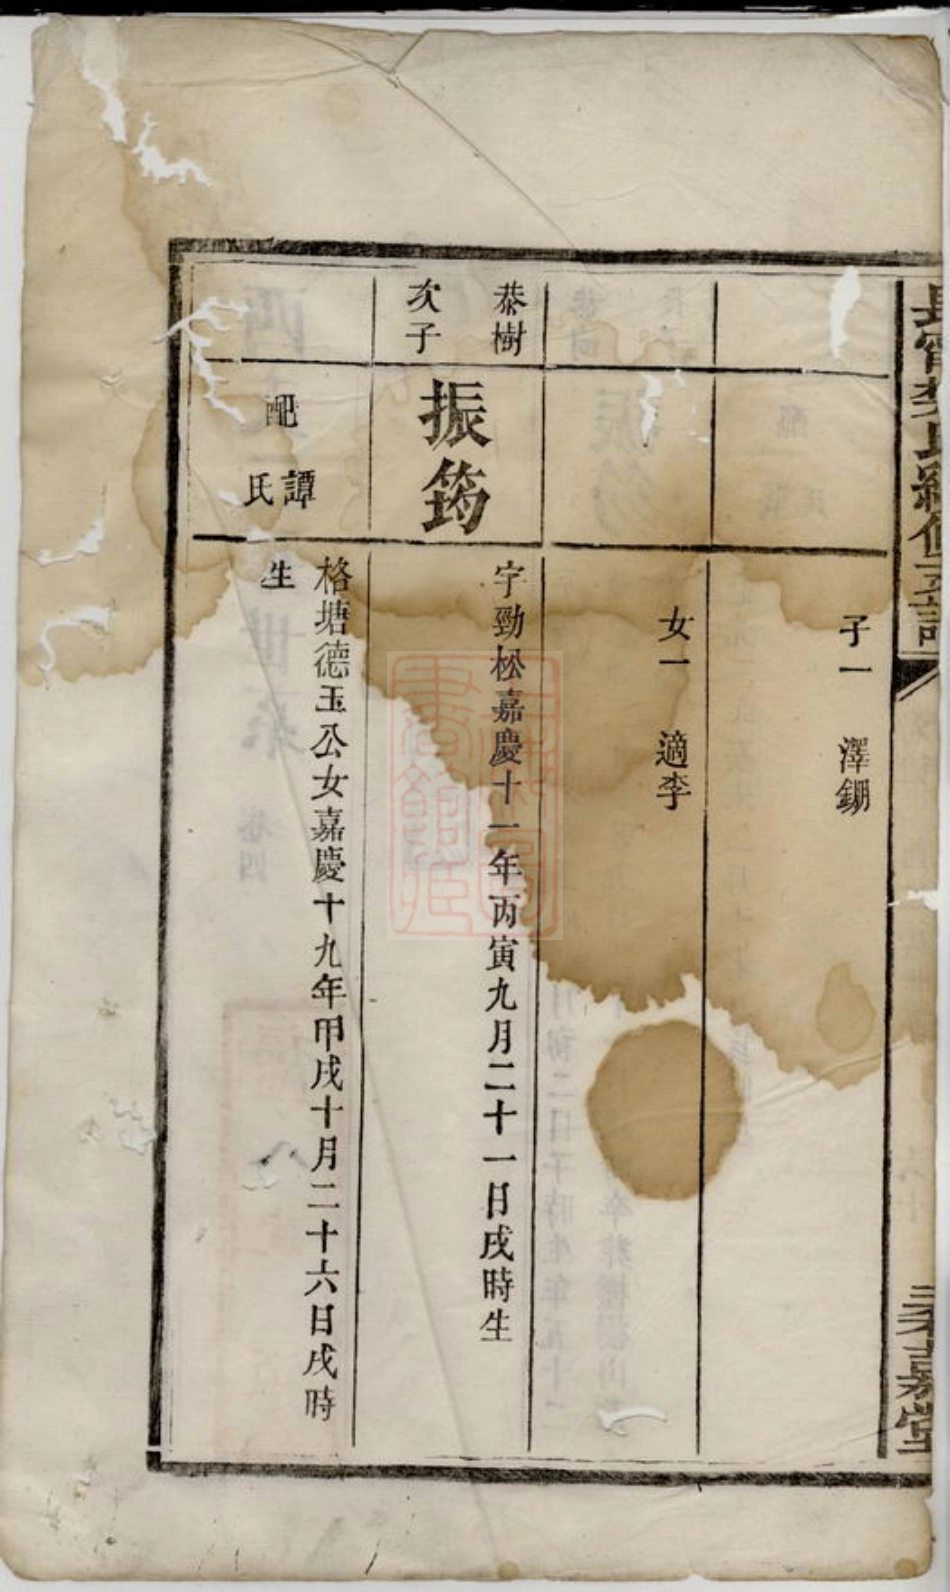 子一 澤鎙
女一 適李
恭樹
次子
振筠
字勁松嘉慶十一年丙寅九月二十一日戌時生
配
譚
氏
格塘德玉公女嘉慶十九年甲戌十月二十六日戌時
生